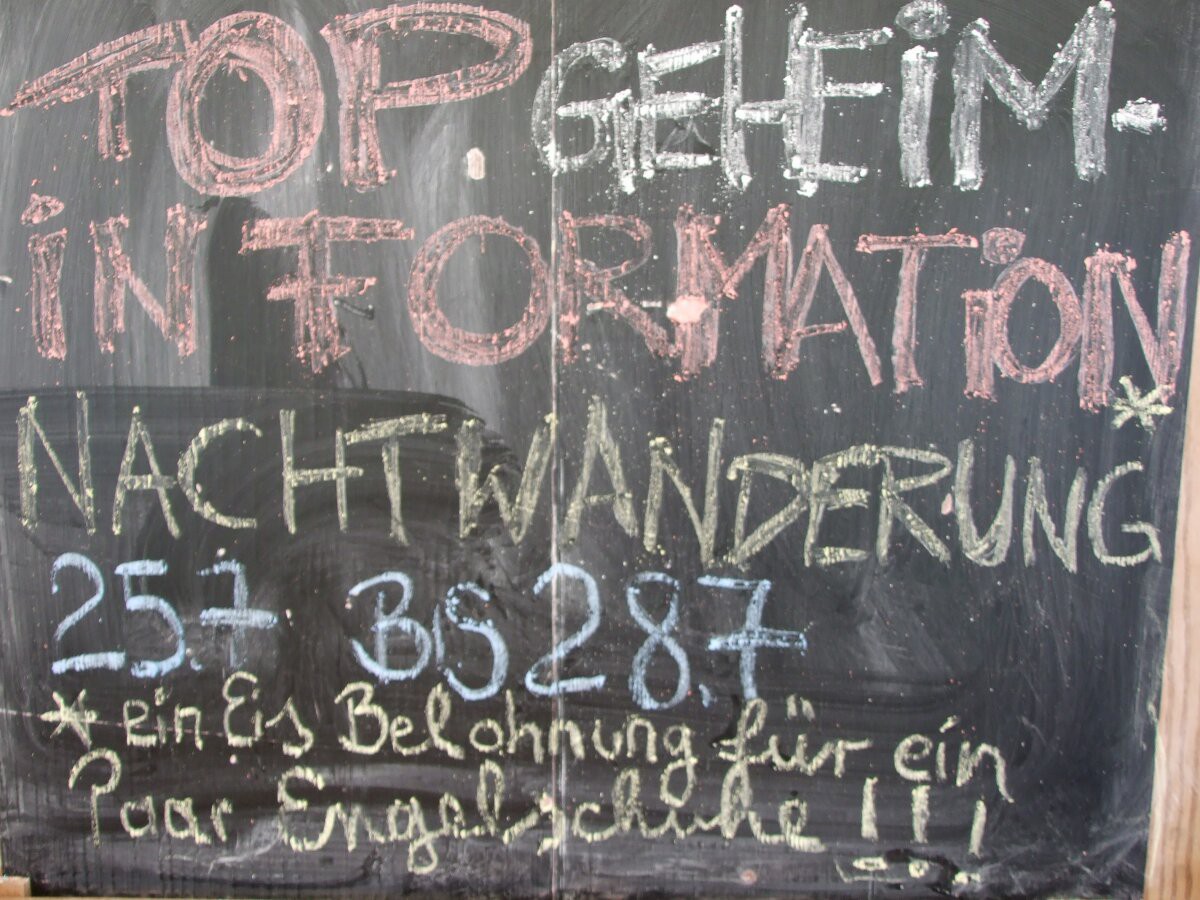 TOP. GEHEiM.
iNFORMATiON
*
NACHTWANDERUNG
25.7 BiS 28.7
* ein Eis Belohnung für ein
Paar Engelschuhe !!!